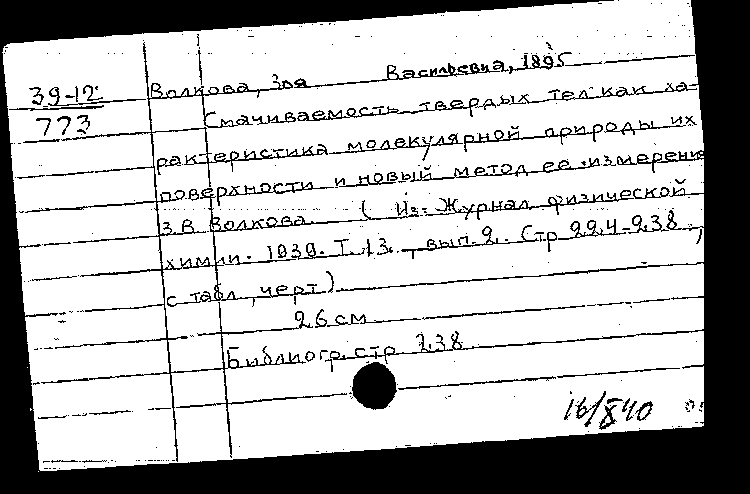 39-12
773
Волкова, Зоя Васильевна, 1895
Смачиваемость твердых тел как ха-
рактеристика молекулярной природы их
поверхности и новый метод ее измерения
З.В. Волкова ( Из: Журнал физической
химии. 1939. Т. 13., вып. 2. Стр 224-238,
с табл, черт)
26 см
Библиогр. стр 238
16/840